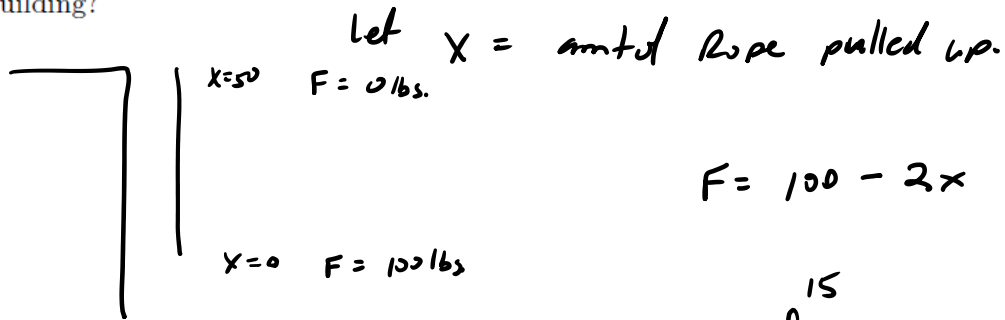 uilding?
Let X = amt of Rope pulled up.
X=50 F = 0 lbs.
F = 100 - 2x
X=0 F = 100 lbs
15